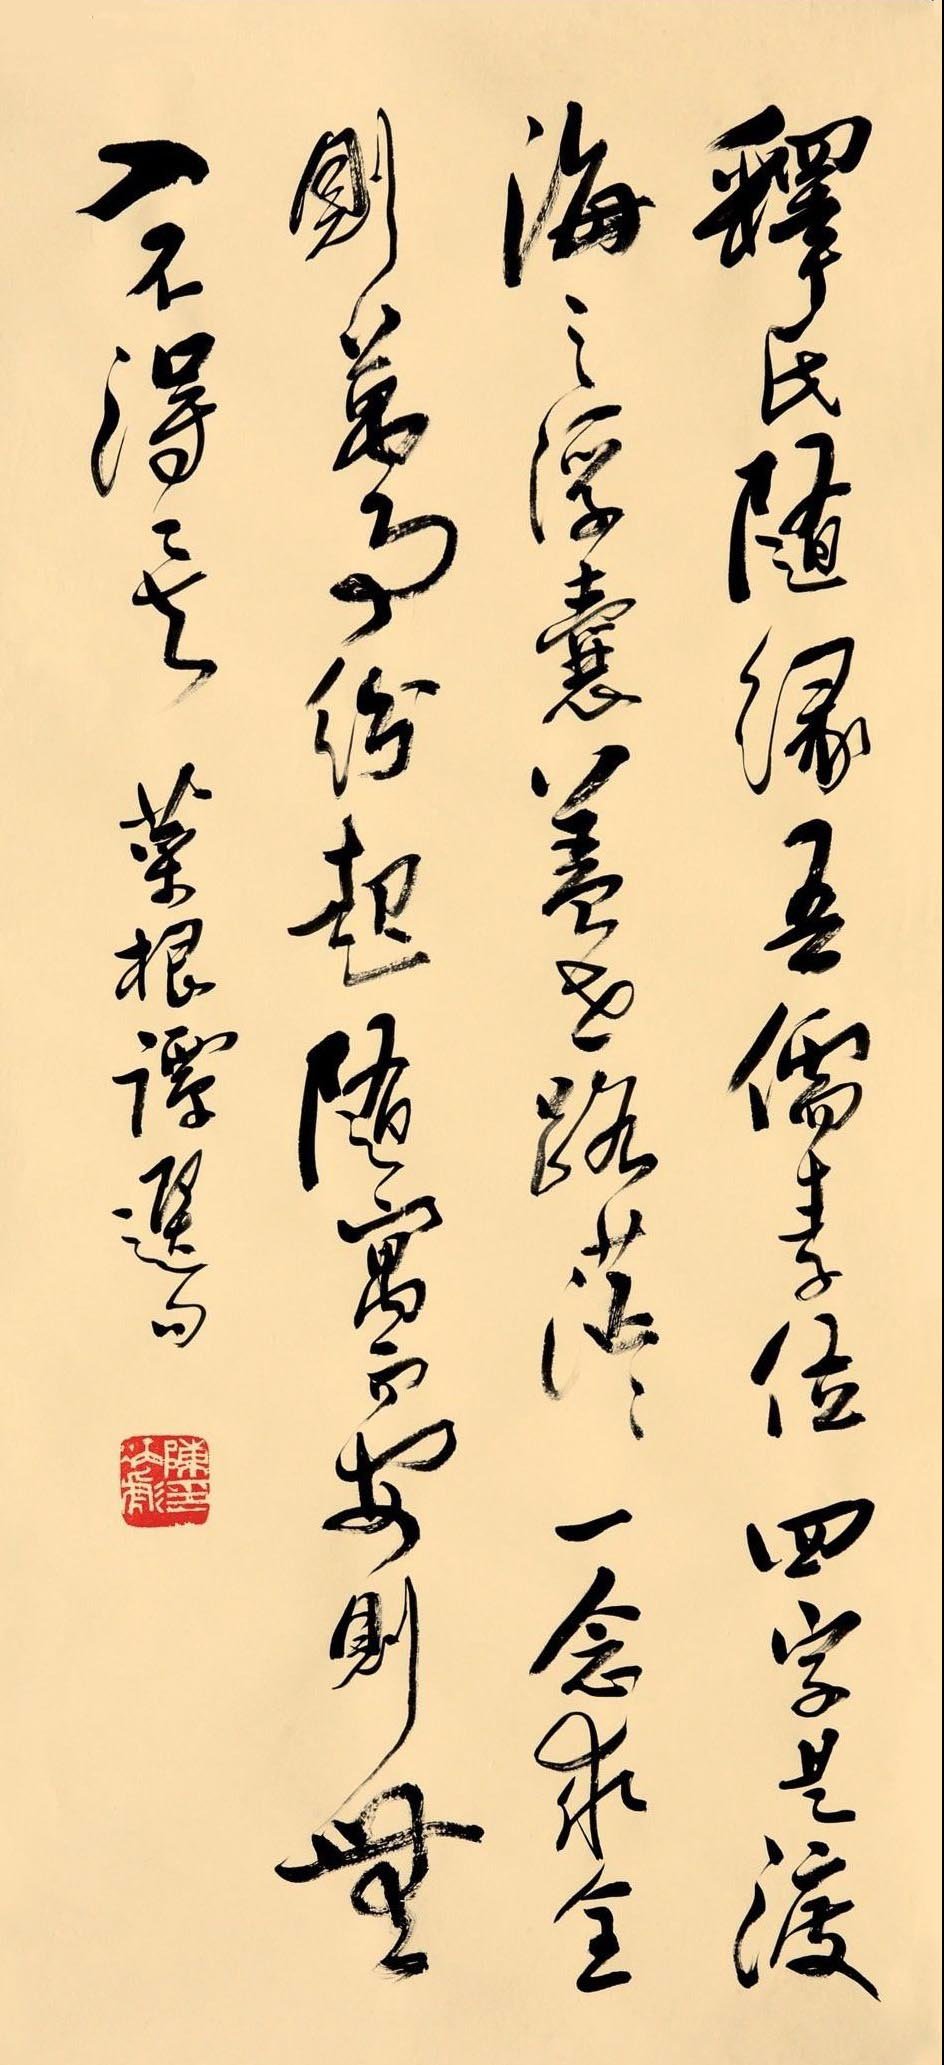 釋氏隨緣吾儒素位四字是渡
海之浮囊蓋世路茫々一念求全
則萬事紛起隨寓而安則無
入不得矣 菜根譚選句
陳印